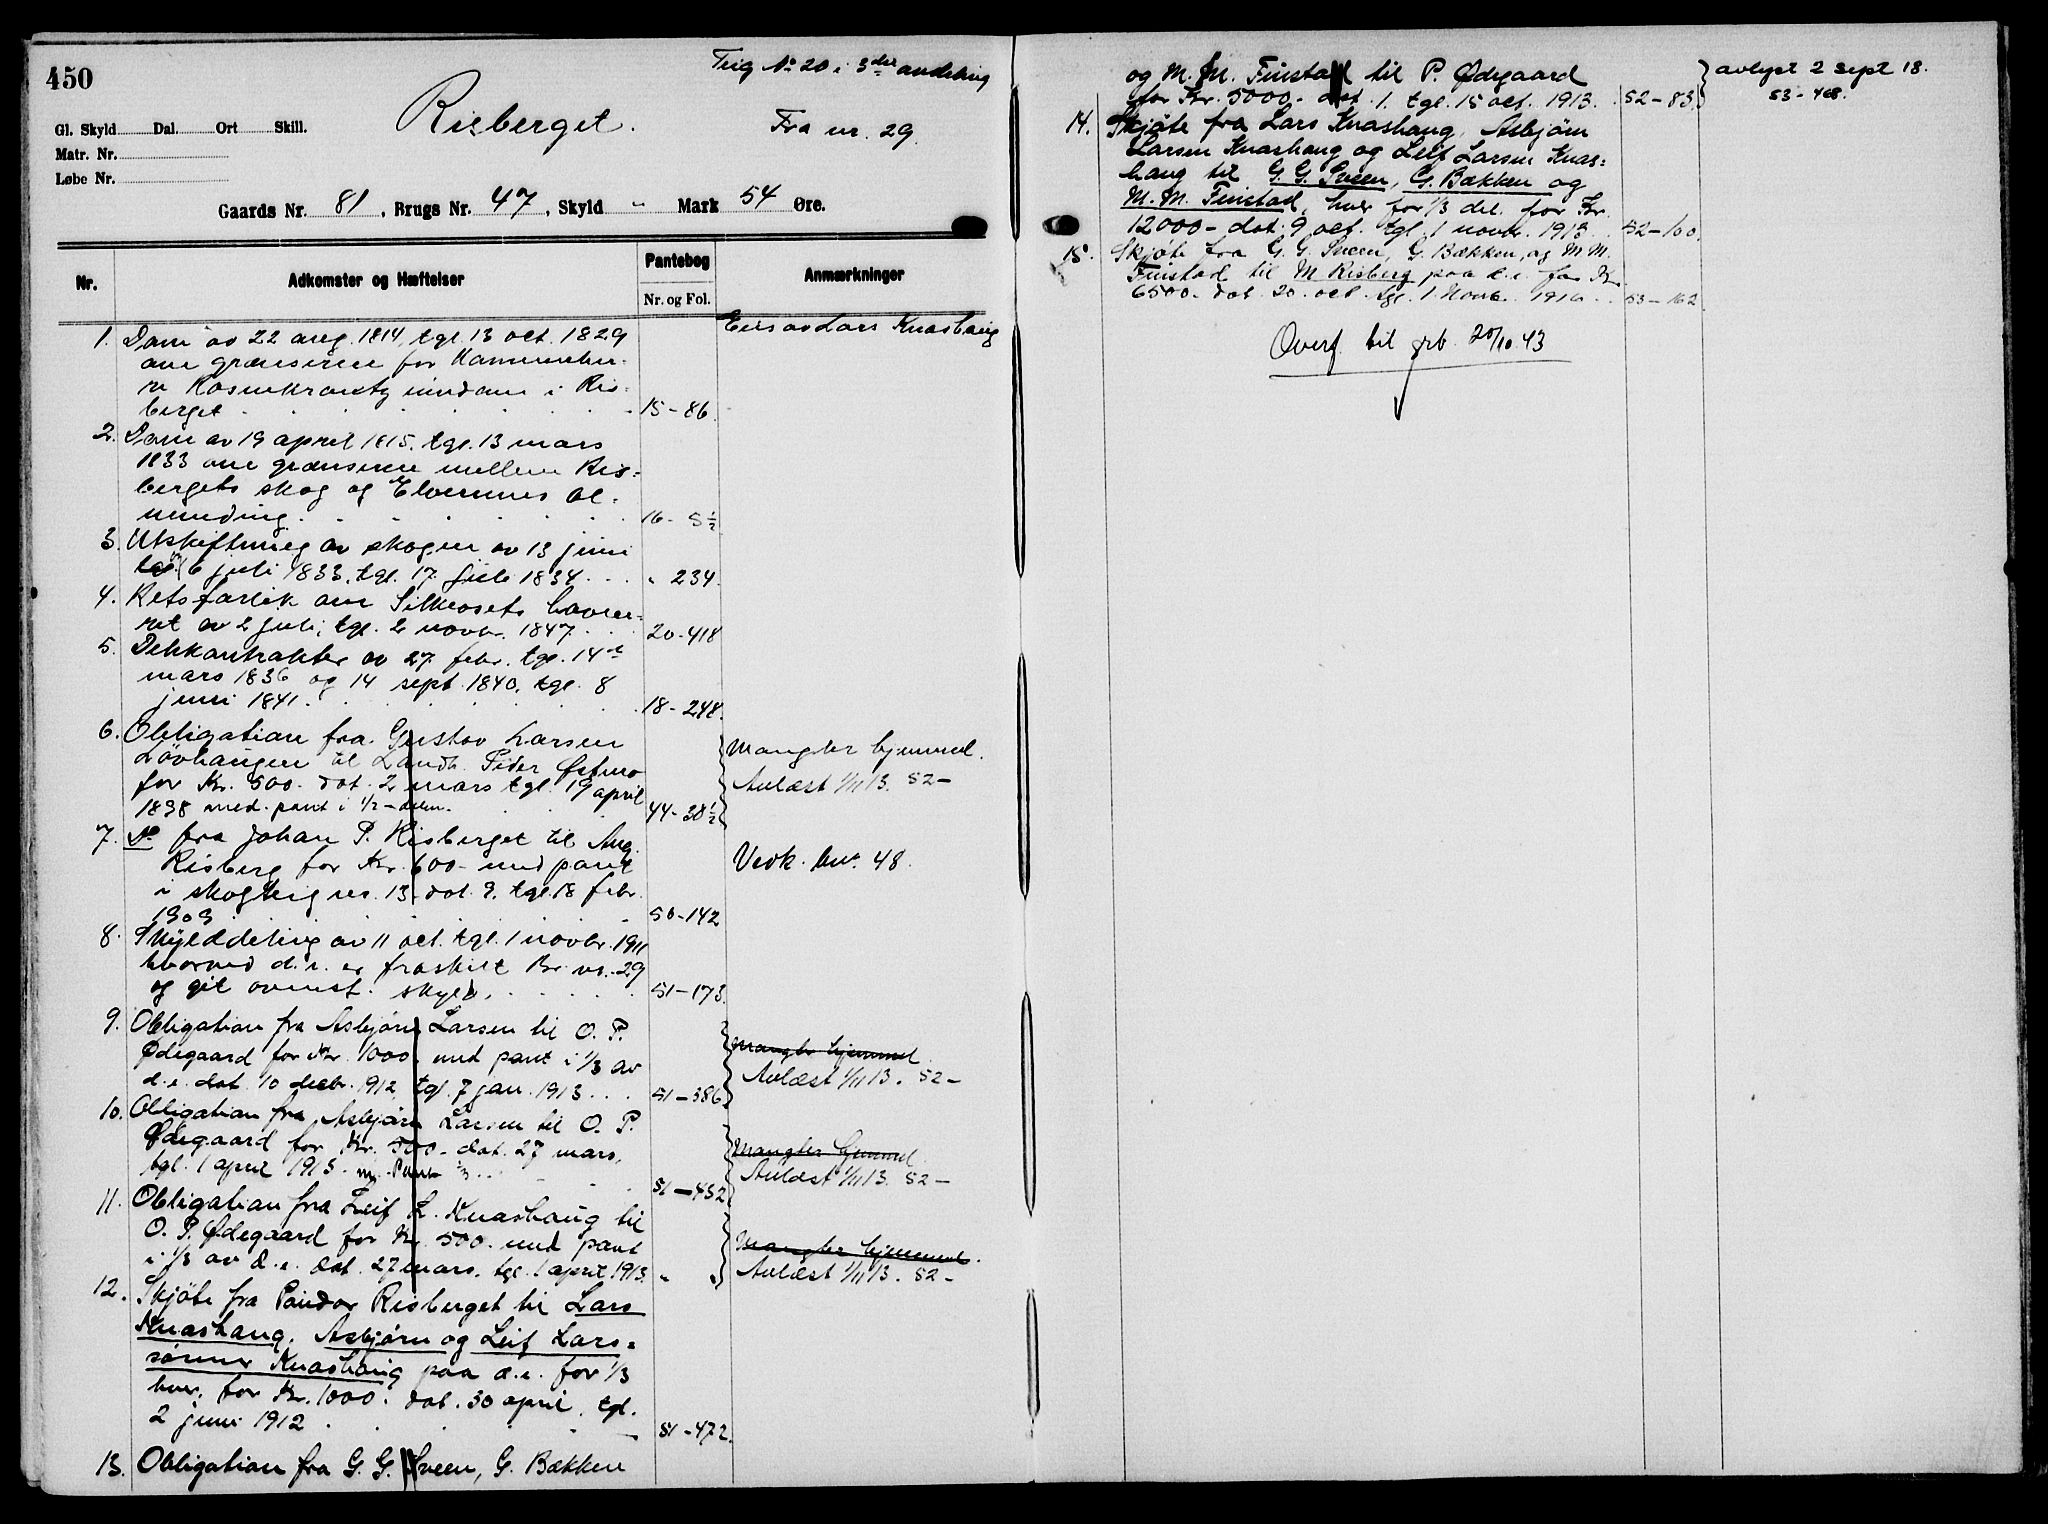 450
Teig No 20 i 3die avdeling
Risberget.
Fra nr. 29.
Gl. Skyld Dal. Ort Skill.
Matr. Nr.
Løbe Nr.
Gaards Nr. 81, Brugs Nr. 47, Skyld - Mark 54 Øre.
Nr. Adkomster og Hæftelser Pantebog Anmærkninger
Nr. og Fol.
Eies av Lars Knashaug
1. Dom av 22 aug. 1814, tgl. 13 oct. 1829
om grænserne for
Rosenkrantz eiendom i Ris-
berget 15-86.
2. Dom av 19 april 1815, tgl. 13 mars
1833 om grænserne mellem Ris=
bergets skog og Elverums al-
minding. 16- 5½
3. Utskiftning av skogen av 13 juni
til 6 juli 1833, tgl. 17 juli 1834 . . . " 234.
4. Retsforlik om havne-
ret av 2 juli, tgl. 2 novbr. 1847 . . 20-418
5. Delekontrakter av 27 febr. tgl. 14de
mars 1836 og 14 sept. 1840, tgl. 8
juni 1841. 18-248.
6. Obligation fra Gustav Larsen
Løvhaugen til Landh. Peder Østmo
for Kr. 500. dat. 2 mars tgl. 19 april
1898 med pant i ½-delen. 44-38½
Mangler hjemmel.
Avlæst 1/11 13. 52-
7. Do fra Johan P. Risberget til Aug.
Risberg for Kr. 600 - med pant
i skogteig nr. 13. dat. 9. tgl. 18 febr.
1909 50-142
Vedk. bnr. 48.
8. Skylddeling av 11 oct. tgl. 1 novbr. 1911
hvorved d. e. er fraskilt Br. nr. 29
og git ovenst. skyld. 51-173.
9. Obligation fra Asbjørn Larsen til O. P.
Ødegaard for Kr. 1000. med pant i 1/3 av
d. e. dat. 10 decbr. 1912, tgl. 7 jan. 1913 . . . 51-386.
Mangler hjemmel.
Avlæst 1/11 13. 52-
10. Obligation fra Asbjørn Larsen til O. P.
Ødegaard for Kr. 500- dat. 27 mars,
tgl. 1 april 1913. m. Pant 1/3 . . 51-432
Mangler hjemmel.
Avlæst 1/11 13. 52-
11. Obligation fra Leif L. Knashaug til
O. P. Ødegaard for Kr. 500. med pant
i 1/3 av d. e. dat. 27 mars. tgl. 1 april 1913. " "
Mangler hjemmel.
Avlæst 1/11 13. 52-
12. Skjøte fra Peder Risberget til Lars
Knashaug, Asbjørn og Leif Lars=
sønner Knashaug paa d. e. for 1/3
hver, for Kr. 1000. dat. 30 april, tgl.
2 juni 1912 51-472.
13. Obligation fra G. G. Sveen, G. Bækken
og M. M. Finstad til P. Ødegaard
for Kr. 5000- dat. 1. tgl. 15 oct. 1913. 52-83.
avlyst 2 sept 18.
53-468.
14. Skjøte fra Lars Knashaug, Asbjørn
Larsen Knashaug og Leif Larsen Knas=
haug til G. G. Sveen, G. Bækken og
M. M. Finstad, hver for 1/3 del. for Kr.
12000- dat. 9 oct. tgl. 1 novbr. 1913. 52-100.
15. Skjøte fra G. G. Sveen, G. Bækken, og M M.
Finstad til M. Risberg paa d. e. for Kr
6500. dat. 20. oct. tgl. 1 Novb. 1916 . . 53-162
Overf. til grb. 20/10.43